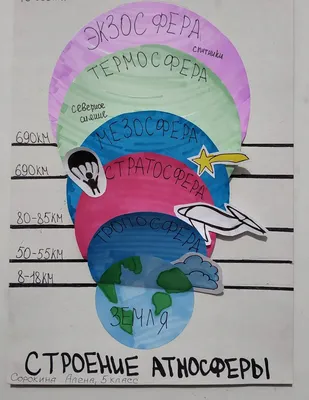 ЭКЗОСФЕРА
спутники
ТЕРМОСФЕРА
северное
сияние
МЕЗОСФЕРА
690КМ
СТРАТОСФЕРА
690КМ
80-85КМ
ТРОПОСФЕРА
50-55КМ
8-18КМ
ЗЕМЛЯ
СТРОЕНИЕ АТМОСФЕРЫ
Сорокина Алена, 5 класс